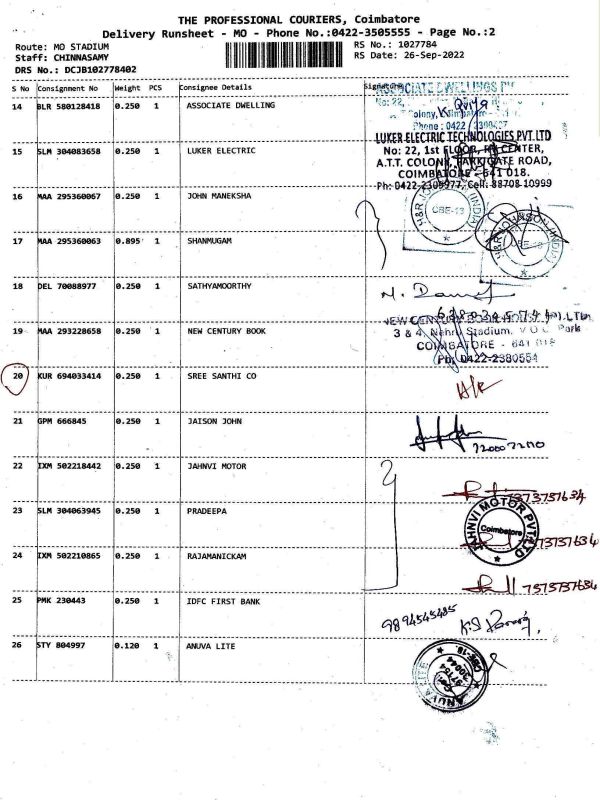 THE PROFESSIONAL COURIERS, Coimbatore
Delivery Runsheet - MO - Phone No.:0422-3505555 - Page No.:2
Route: MO STADIUM
Staff: CHINNASAMY
DRS No.: DCJB102778402
RS No.: 1027784
RS Date: 26-Sep-2022
S No Consignment No Weight PCS Consignee Details Signature
14 BLR 580128418 0.250 1 ASSOCIATE DWELLING
ASSOCIATE DWELLINGS
No: 22,
Colony,
Phone : 0422
15 SLM 304083658 0.250 1 LUKER ELECTRIC
LUKER ELECTRIC TECHNOLOGIES PVT. LTD
No: 22, 1st FLOOR, CENTER,
A.T.T. COLONY, PARKGATE ROAD,
COIMBATORE - 641 018.
Ph: 0422-2309977, Cell: 88708-10999
16 MAA 295360067 0.250 1 JOHN MANEKSHA
H&R JOHNSON (INDIA)
CBE-18
17 MAA 295360063 0.895 1 SHANMUGAM
H&R JOHNSON (INDIA)
CBE-18
18 DEL 70088977 0.250 1 SATHYAMOORTHY
19 MAA 293228658 0.250 1 NEW CENTURY BOOK
NEW CENTURY BOOK HOUSE (P) LTD.
3 & 4, Nehru Stadium, V O C Park
COIMBATORE - 641 018
Ph: 0422-2380554
20 KUR 694033414 0.250 1 SREE SANTHI CO
21 GPM 666845 0.250 1 JAISON JOHN
22 IXM 502218442 0.250 1 JAHNVI MOTOR
7373757634
23 SLM 304063945 0.250 1 PRADEEPA
JAHNVI MOTOR PVT LTD
Coimbatore
24 IXM 502210865 0.250 1 RAJAMANICKAM
25 PMK 230443 0.250 1 IDFC FIRST BANK
9894545485
26 STY 804997 0.120 1 ANUVA LITE
ANUVA LITE